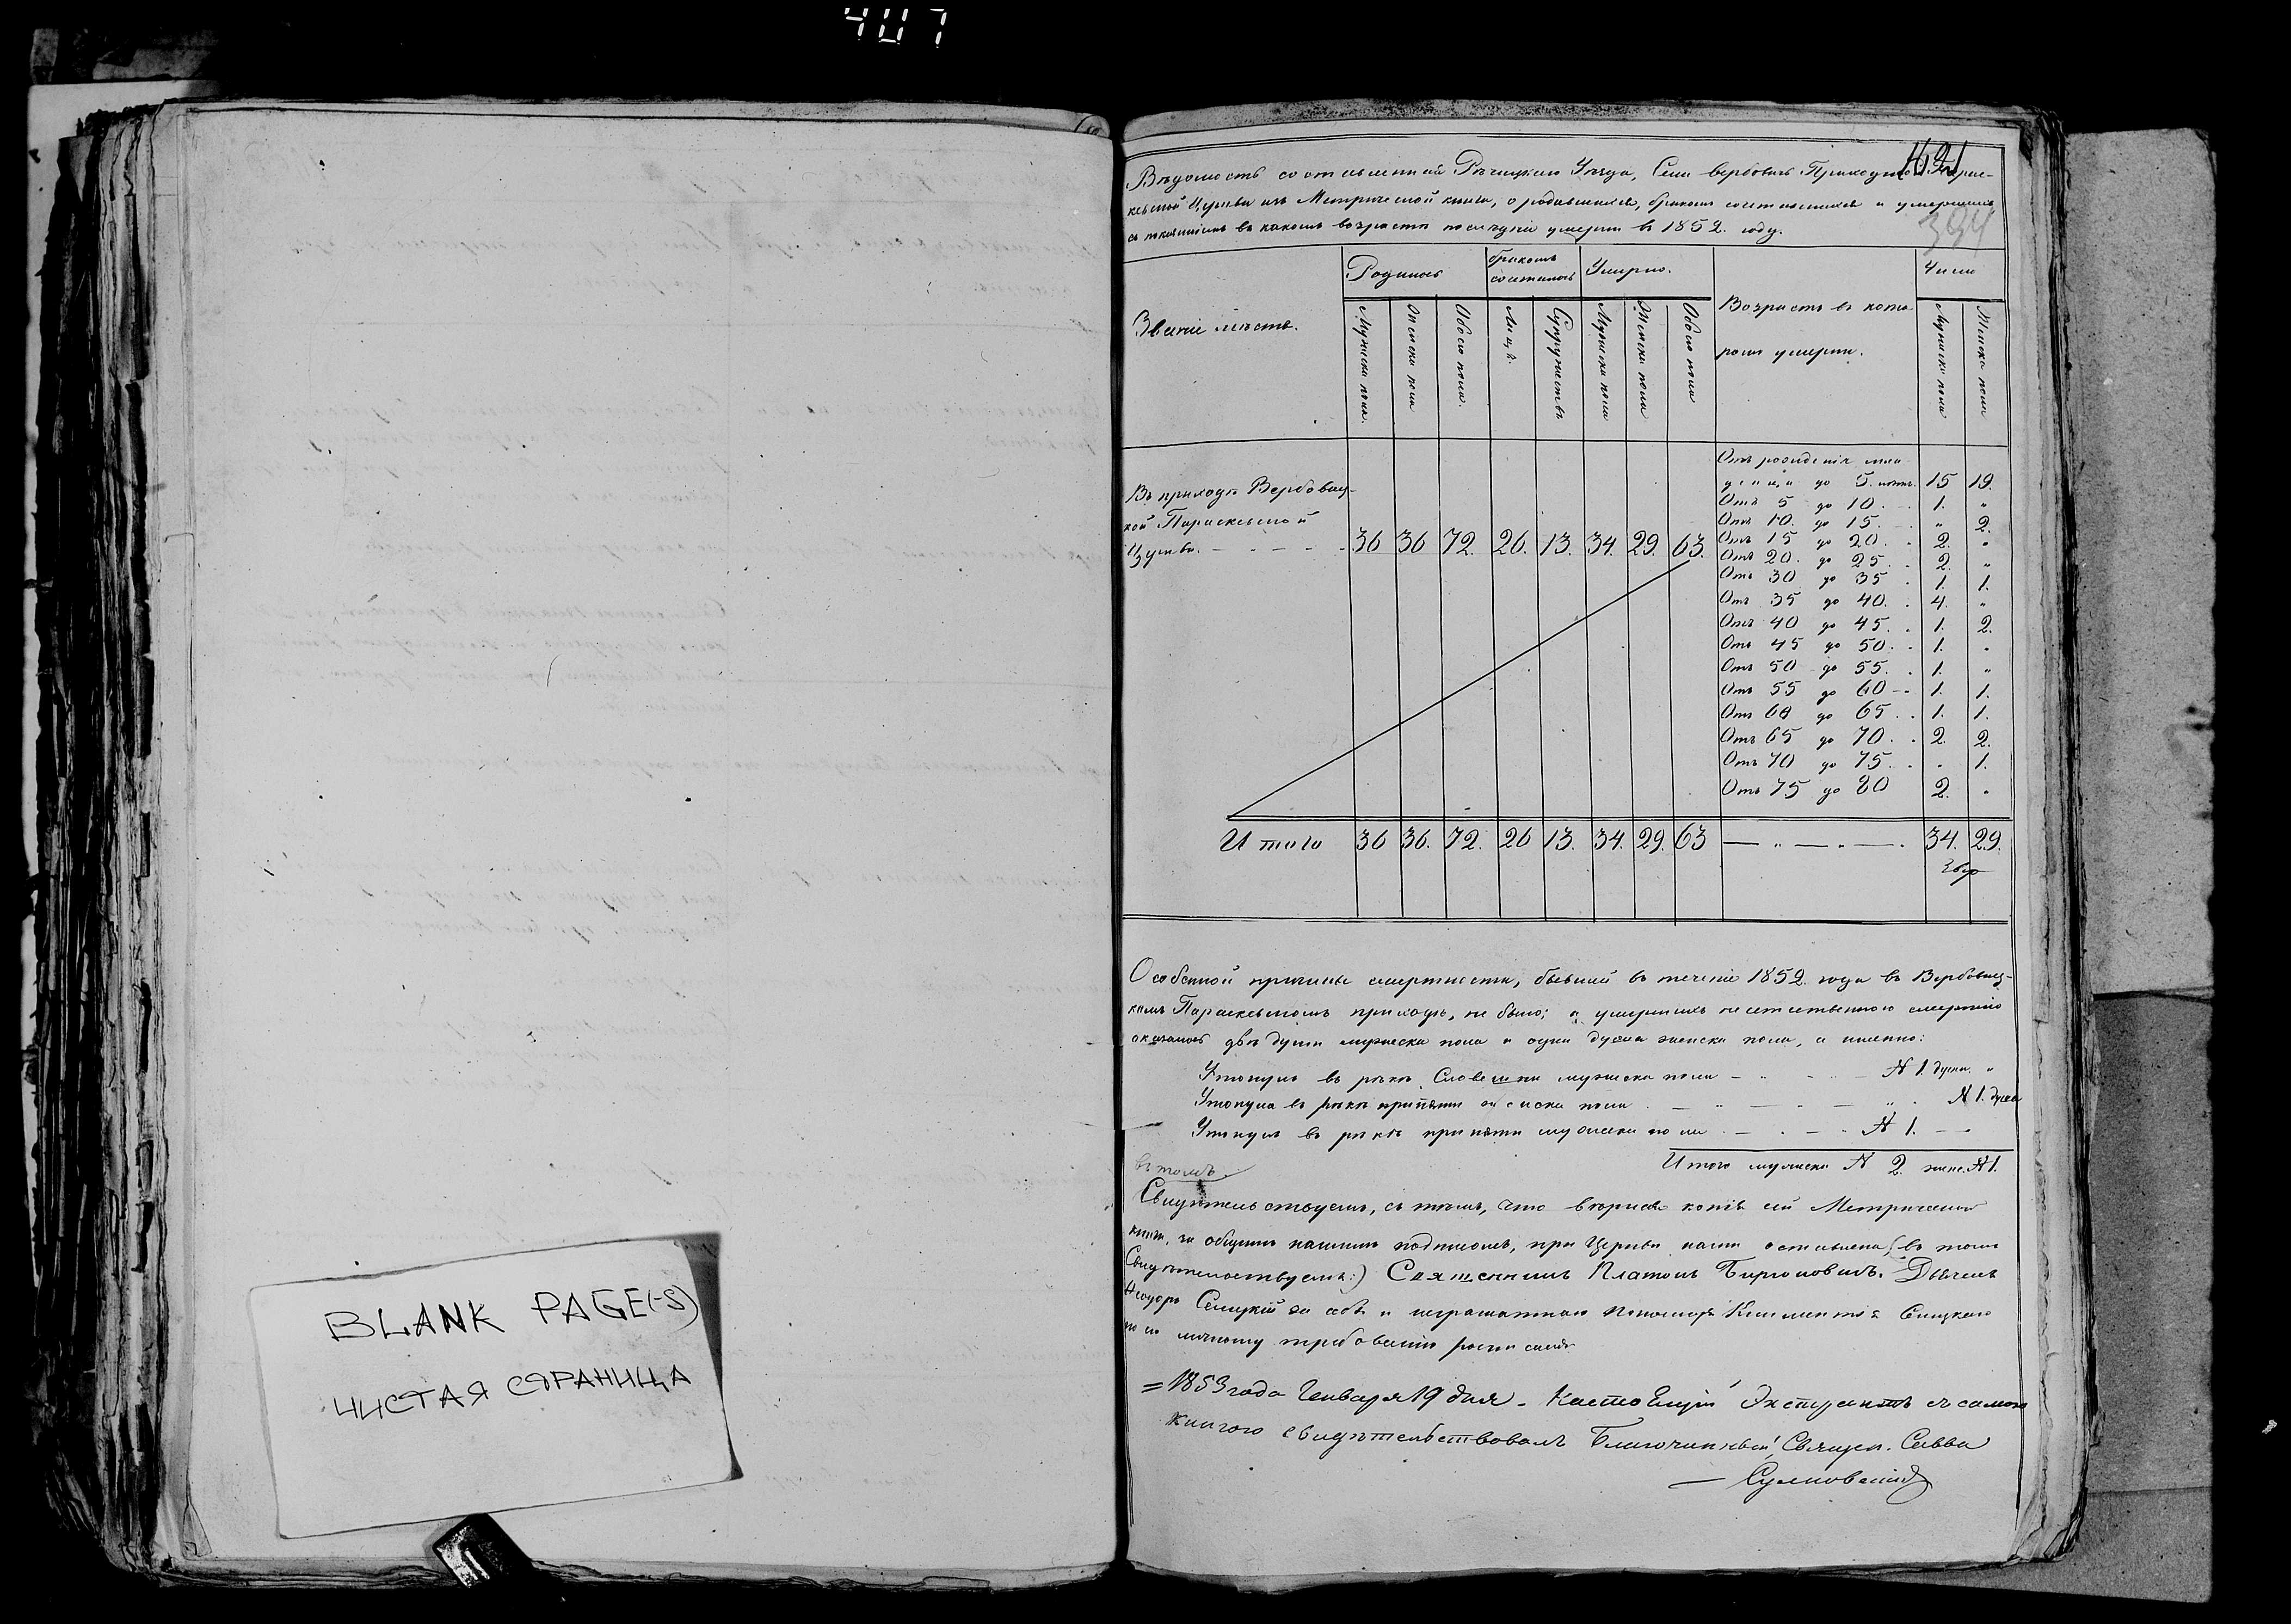 407
421
394
Вѣдомость составленная Рѣчицкаго Уѣзда, Села Вербовичъ Приходской Парас-
кевской Церкви изъ Метрической книги, о родившихся, бракомъ сочетавшихся и умершихъ
съ показаніемъ въ какомъ возрастѣ послѣдніе умерли въ 1852. году.
Званіе мѣста.
Родилось
бракомъ сочеталось
Умерло.
Возрастъ въ кото-
ромъ умерли.
Число
Мужеска пола.
Женска пола
Обоего пола.
Лицъ.
Супружествъ
Мужеска пола
Женска пола
Обоего пола
Мужеска пола
Женска пола
Въ приходѣ Вербовиц-
кой Параскевской
Церкви. 36 36 72. 26. 13. 34. 29. 63.
Отъ рожденія мла-
денцы до 5. лѣтъ. 15 19.
Отъ 5 до 10. 1. "
Отъ 10. до 15. " 2.
Отъ 15 до 20. 2. "
Отъ 20. до 25. 2. "
Отъ 30 до 35 1. 1.
Отъ 35 до 40. 4. "
Отъ 40 до 45. 1. 2.
Отъ 45 до 50. 1. "
Отъ 50 до 55. 1. "
Отъ 55 до 60 1. 1.
Отъ 60 до 65. 1. 1.
Отъ 65 до 70. 2. 2.
Отъ 70 до 75. . 1.
Отъ 75 до 80 2. "
Итого 36 36. 72. 26 13. 34. 29. 63 — " — " — 34. 29.
Особенной причины смертности, бывшей въ теченіе 1852. года въ Вербовиц-
комъ Параскевскомъ приходѣ, не было; а умершихъ неестественною смертію
оказалось двѣ души мужеска пола и одна душа женска пола, а именно:
Утонулъ въ рѣкѣ Словешни мужеска пола № 1. душа "
Утонула въ рѣкѣ припяти женска пола № 1. душа
Утонулъ въ рѣкѣ припяти мужеска пола № 1.
Итого мужеска № 2. женс. № 1.
въ томъ
Свидѣтельствуемъ, съ тѣмъ, что вторая копія сей Метрической
книги, за общимъ нашимъ подписомъ, при Церкви нашей оставлена (въ томъ
Свидѣтельствуемъ:) Священникъ Платонъ Дьячекъ
Ѳеодоръ за себя и неграматнаго Пономаря Климентія
по его личному требованію росписался
= 1853 года Генваря 19 дня. Настоящій Экстрактъ съ самою
книгою свидѣтельствовалъ Благочинный, Священ. Савва
— Сулковскій
BLANK PAGE(-S)
ЧИСТАЯ СТРАНИЦА